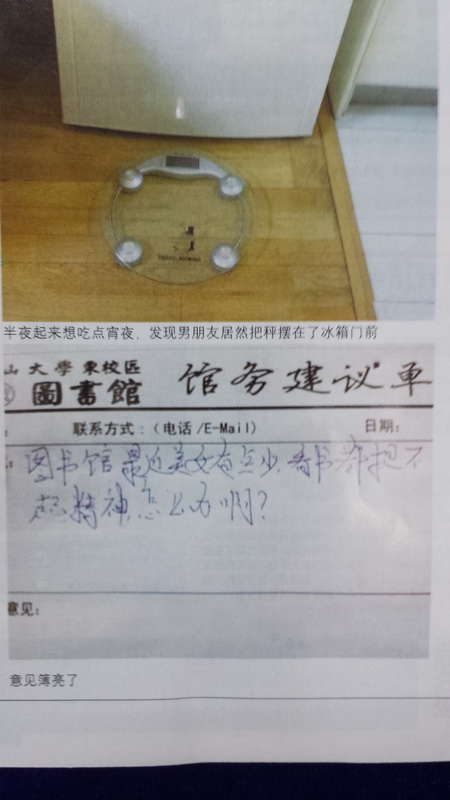 半夜起来想吃点宵夜，发现男朋友居然把秤摆在了冰箱门前
山大學東校区
圖書館 馆务建议单
联系方式：(电话/E-Mail) 日期：
图书馆最近美女有点少，看书都提不
起精神，怎么办啊？
意见：
意见簿亮了